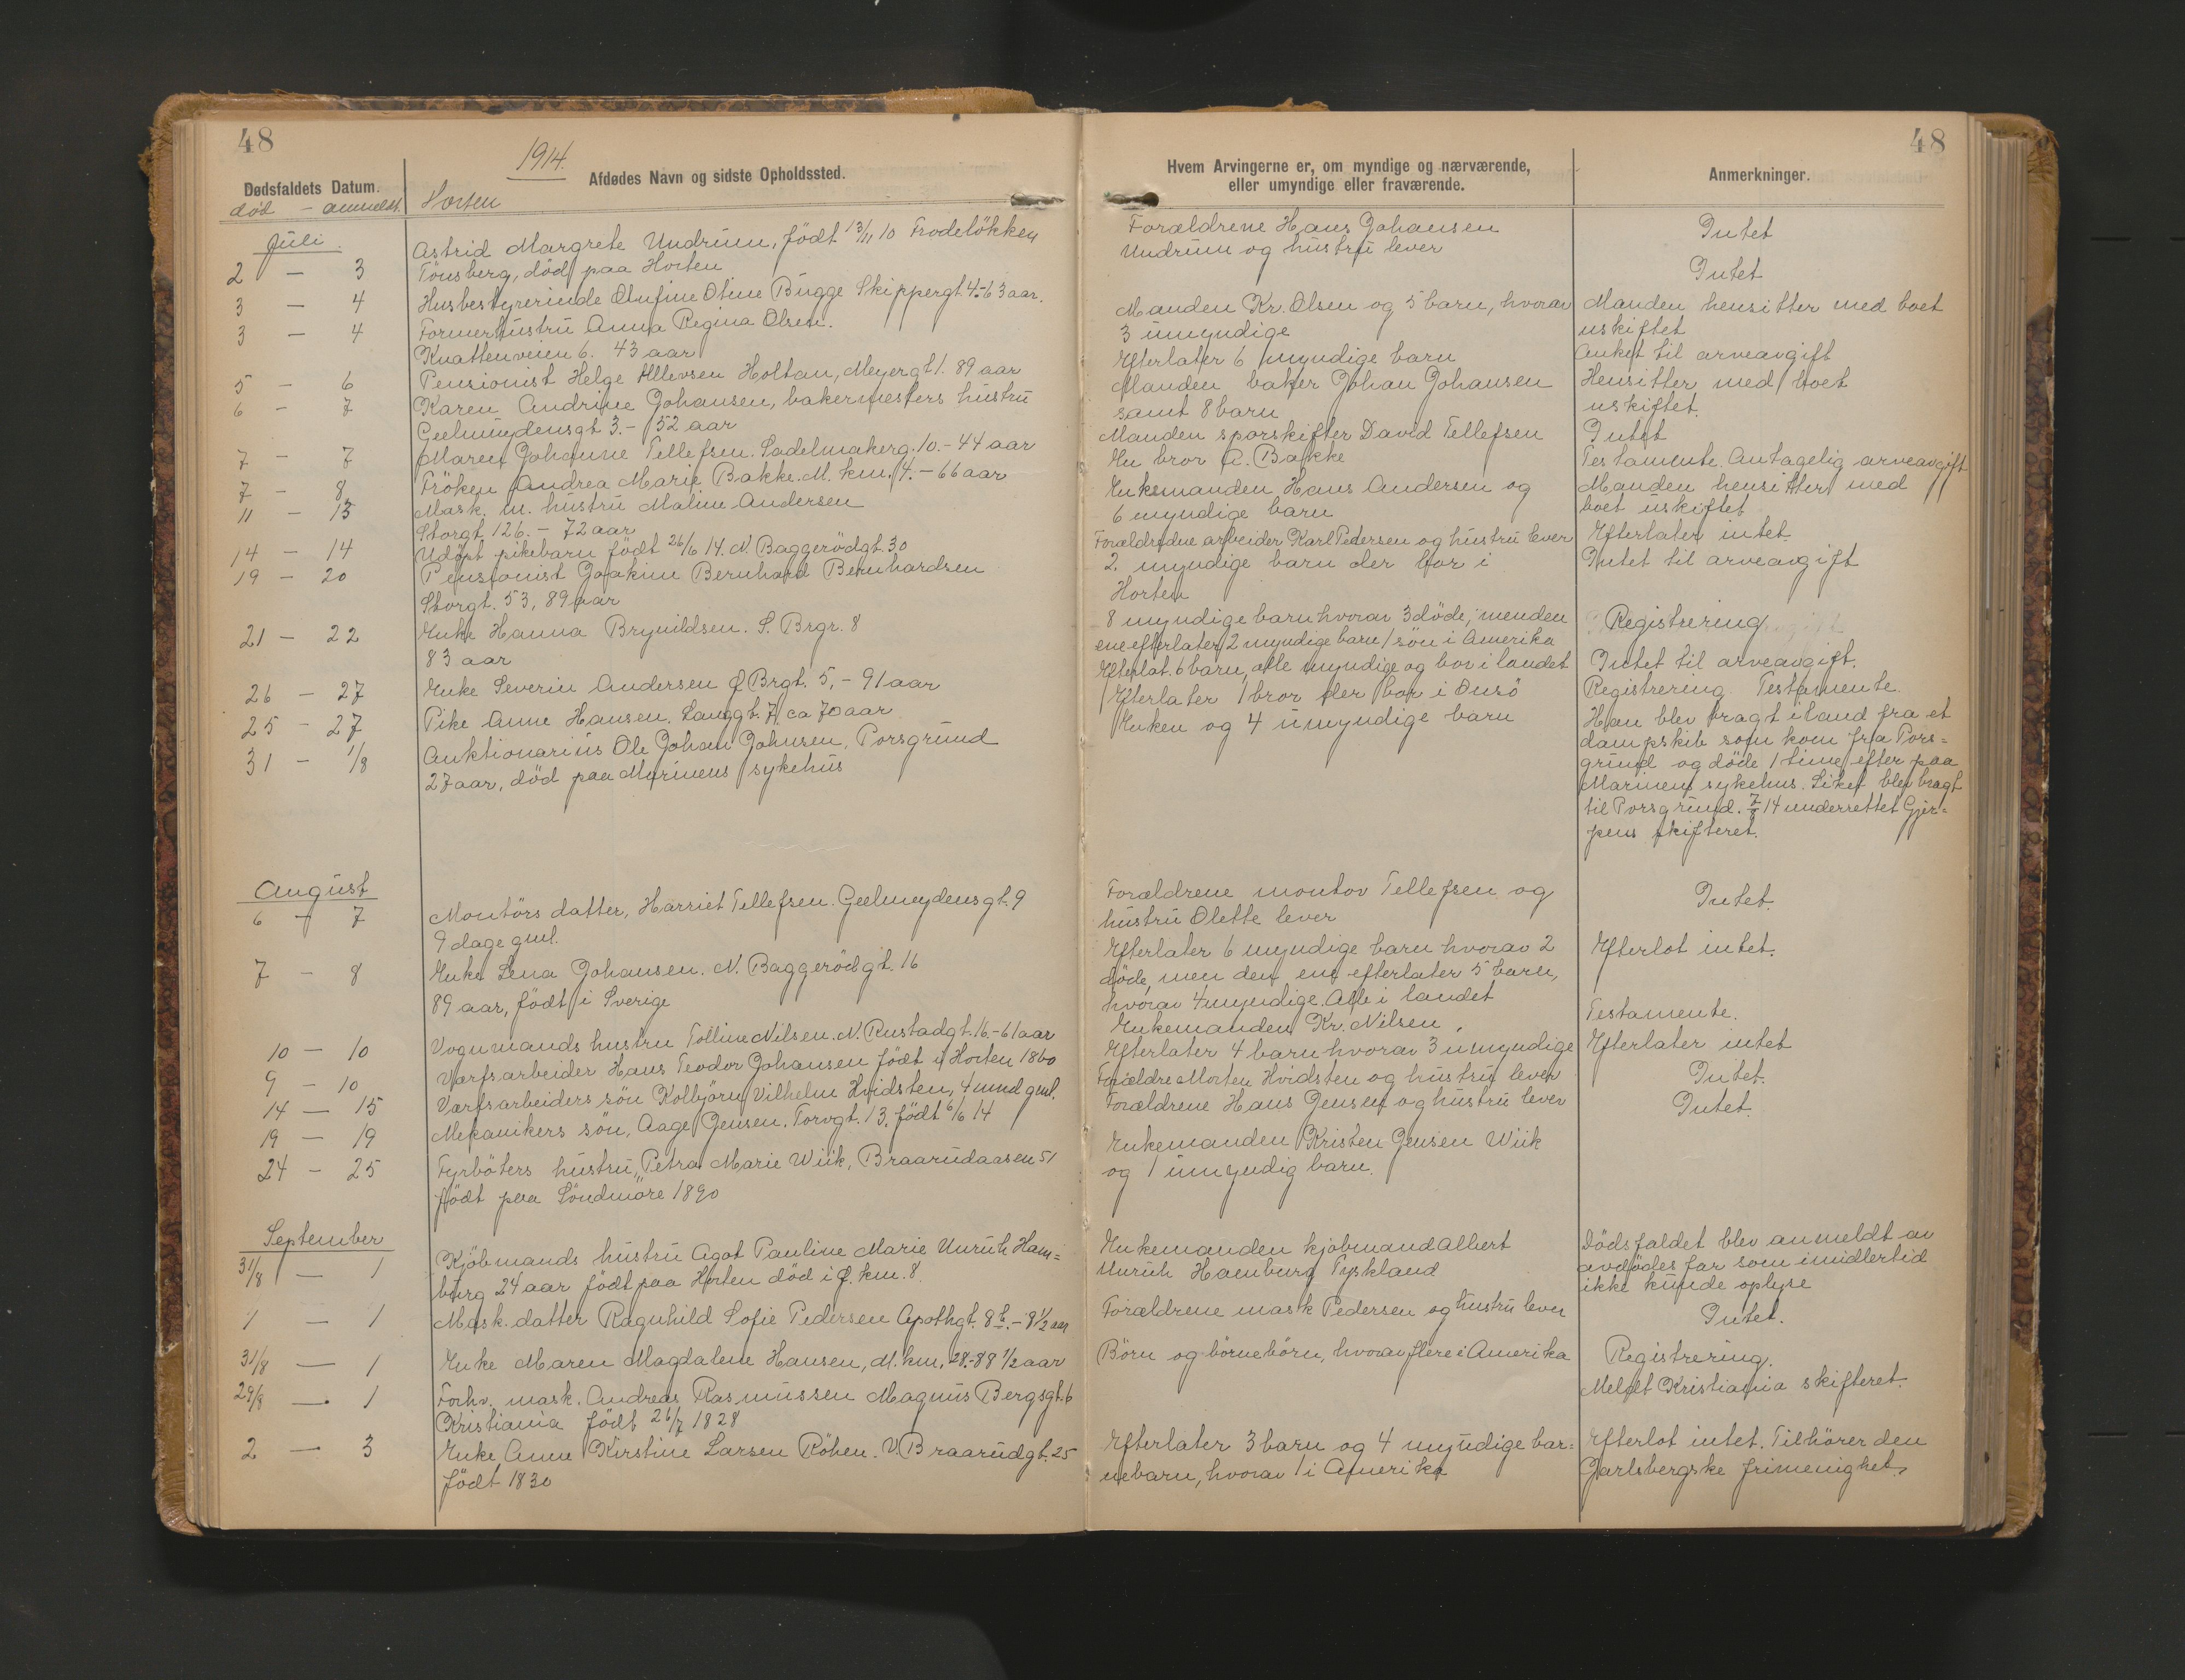 48
1914.
Dødsfaldets Datum.
død - anmeldt.
Afdødes Navn og sidste Opholdssted.
Horten
Juli
2 - 3
3 - 4
3 - 4
5 - 6
6 - 7
7 - 7
7 - 8
11 - 13
14 - 14
19 - 20
21 - 22
26 - 27
25 - 27
31 - 1/8
Astrid Margrete Undrum, födt 13/11 10 Frodelökken
Tönsberg, död paa Horten
Husbestyrerinde Olufine Otine Bugge Skippergt. 4.-63 aar.
Formerhustru Anna Regina Olsen.
Knattenveien 6. 43 aar
Pensionist Helge Ellevsen Holtan, Meyergt 1. 89 aar
Karen Andrine Johansen, bakermesters hustru
Geelmuydensgt 3.- 52 aar
Maren Johanne Tellefsen. Sadelmakerg. 10.- 44 aar
Fröken Andrea Marie Bakke. M. km. 4.- 66 aar
Mask. m. hustru Maline Andersen
Storgt. 126.- 72 aar
Udöpt pikebarn födt 26/6 14. N. Baggerödgt. 30
Pensionist Joakim Bernhard Bernhardsen
Storgt. 53, 89 aar
Enke Hanna Brynildsen. S. Brgr. 8
83 aar
Enke Severin Andersen Ø Brgt. 5,- 91 aar
Pike Anne Hansen. Langgt. 7, ca 70 aar
Auktionarius Ole Johan Johnsen, Porsgrund
27 aar, död paa Marinens sykehus
August
6 - 7
7 - 8
10 - 10
9 - 10
14 - 15
19 - 19
24 - 25
Montörs datter, Harriet Tellefsen. Geelmuydensgt. 9
9 dage gml.
Enke Lena Johansen. N. Baggerödgt. 16
89 aar, födt i Sverige
Vognmands hustru Tolline Nilsen. N. Rustadgt. 16.- 61 aar
Værfsarbeider Hans Teodor Johansen födt i Horten 1860
Værfsarbeiders sön Kolbjörn Vilhelm Hvidsten, 4 mnd gml.
Mekanikers sön, Aage Jensen. Torvgt. 13, födt 6/6 14
Fyrböters hustru, Petra Marie Wiik, Braarudaasen 51
födt paa Söndmöre 1890
September
31/8 - 1
1 - 1
31/8 - 1
29/8 - 1
2 - 3
Kjöbmands hustru Agot Pauline Marie Unruh Ham=
burg 24 aar födt paa Horten död i Ø. km. 8.
Mask. datter Ragnhild Sofie Pedersen Apothgt. 8 b.- 8 1/2 aar
Enke Maren Magdalene Hansen, M. km, 28.-88 1/2 aar
Forhv. mask. Andreas Rasmussen Magnus Bergsgt. 6
Kristiania födt 26/7 1828
Enke Anne Kirstine Larsen Röhen. V. Braarudgt. 25
födt 1830
48
Hvem Arvingerne er, om myndige og nærværende,
eller umyndige eller fraværende.
Forældrene Hans Johansen
Undrum og hustru lever
Manden Kr. Olsen og 5 barn, hvorav
3 umyndige
Efterlater 6 myndige barn
Manden baker Johan Johansen
samt 8 barn
Manden sporskifter David Tellefsen
En bror A. Bakke
Enkemanden Hans Andersen og
6 myndige barn
Forældrene arbeider Karl Pedersen og hustru lever
2. myndige barn der bor i
Horten
8 myndige barn hvorav 3 döde, men den
ene efterlater 2 myndige barn 1 sön i Amerika
Efterlat. 6 barn, alle myndige og bor i landet
Efterlater 1 bror der bor i Onsö
Enken og 4 umyndige barn
Forældrene montör Tellefsen og
hustru Olette lever
Efterlater 6 myndige barn hvorav 2
döde, men den ene efterlater 5 barn,
hvorav 4 myndige. Alle i landet
Enkemanden Kr. Nilsen.
Efterlater 4 barn hvorav 3 umyndige
Forældre Morten Hvidsten og hustru lever
Forældrene Hans Jensen og hustru lever
Enkemanden Kristen Jensen Wiik
og 1 umyndig barn.
Enkemanden kjøbmand Albert
Unruh Hamburg Tyskland
Forældrene mask Pedersen og hustru lever
Börn og börnebörn, hvorav flere i Amerika
Efterlater 3 barn og 4 myndige bar=
nebarn, hvorav 1 i Amerika
Anmerkninger.
Intet
Intet
Manden hensitter med boet
uskiftet
Anket til arveavgift
Hensitter med boet
uskiftet.
Intet
Testamente. Antagelig arveavgift
Manden hensitter med
boet uskiftet
Efterlater intet.
Intet til arveavgift
Registrering
Intet til arveavgift.
Registrering. Testamente.
Han blev bragt iland fra et
dampskib som kom fra Pors=
grund og döde 1 time efter paa
Marinens sykehus. Liket blev bragt
til Porsgrund. 7/8 14 underrettet Gjer=
pens skifteret.
Intet.
Efterlot intet.
Testamente.
Efterlater intet
Intet.
Intet.
Dödsfaldet blev anmeldt av
avdödes far som imidlertid
ikke kunde oplyse
Intet.
Registrering.
Meldt Kristiania skifteret.
Efterlot intet. Tilhörer den
Jarlsbergske frimenighet.